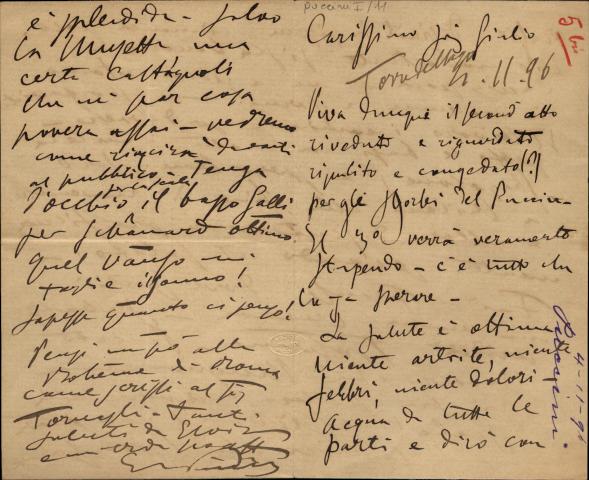 Puccini I/11
5 bis
Carissimo Sig Giulio
Torre del lago
4.11.96
Viva dunque il second atto
riveduto e riguardato
ripulito e congedato(?)
per gli sgorbi del Puccin-
Il 3º verrà veramente
stupendo - c'è tutto da
sperare -
La salute è ottima
niente artrite, niente
febbri, niente dolori
acqua da tutte le
parti e dirò con
4-11-96
Puccini.
è splendida - salvo
la Musetta una
certa Castagnoli
che mi par cosa
povera assai - vedremo
come riuscirà davanti
al pubblico. Tenga
d'occhio il basso Galli
per la Scala
per Schaunard ottimo.
Quel Vanzo mi
toglie il sonno!
Sapesse quanto ci penso!
Pensi un pò alla
Bohème di Roma
come scrissi al Sig
Tornaghi - Tanti
saluti da Elvira